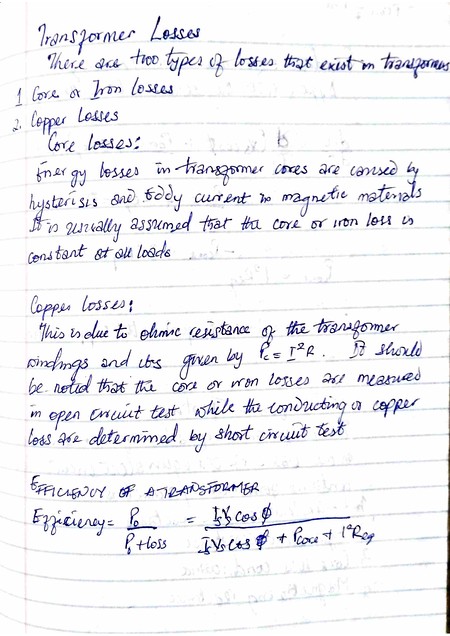 Transformer Losses
There are two types of losses that exist in transformers
1 Core or Iron losses
2. Copper Losses
Core losses:
Energy losses in transformer cores are caused by
hysterisis and Eddy current in magnetic materials
It is usually assumed that the core or iron loss is
constant at all loads
Copper losses:
This is due to ohmic resistance of the transformer
windings and its given by Pc = I²R. It should
be noted that the core or iron losses are measured
in open circuit test while the conducting or copper
loss are determined by short circuit test
EFFICIENCY OF A TRANSFORMER
Efficiency = Po / Po + loss = IsVs cos φ / IsVs cos φ + Pcore + I²Req